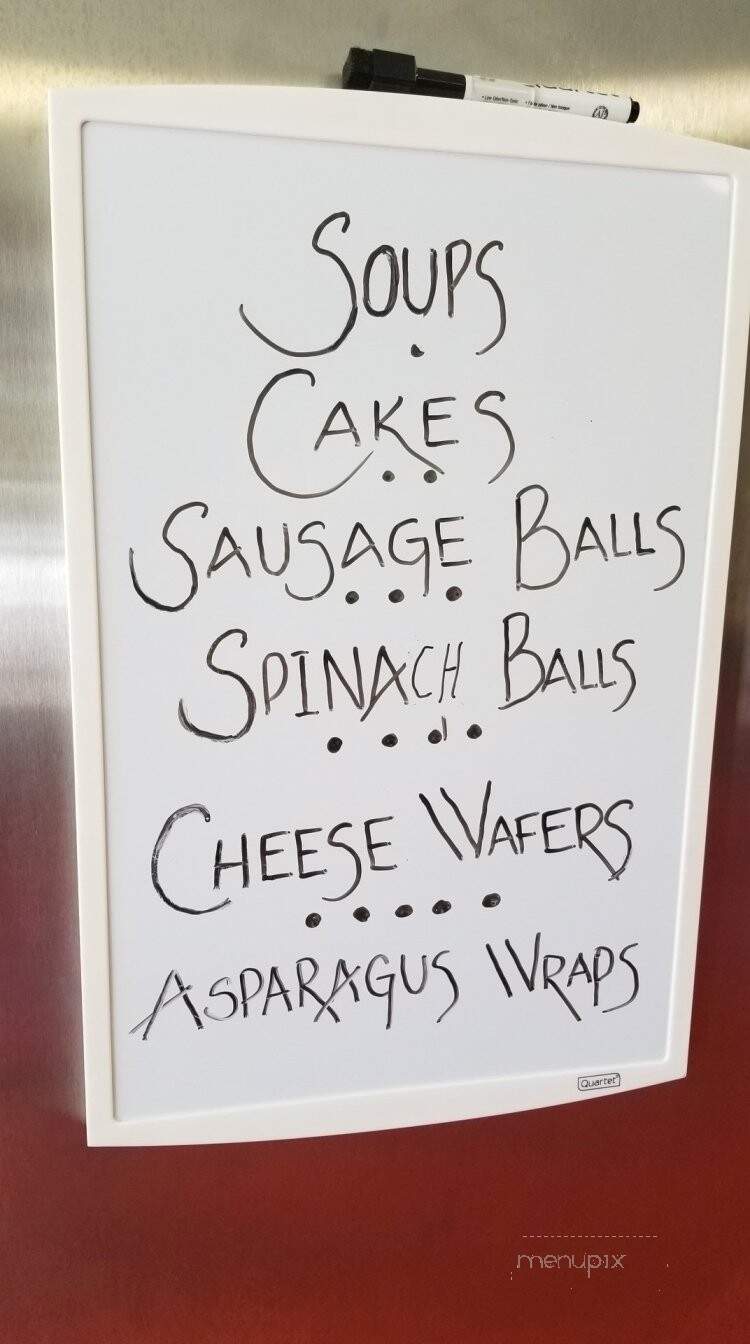 Soups
Cakes
Sausage Balls
Spinach Balls
Cheese Wafers
Asparagus Wraps
Quartet
menupix